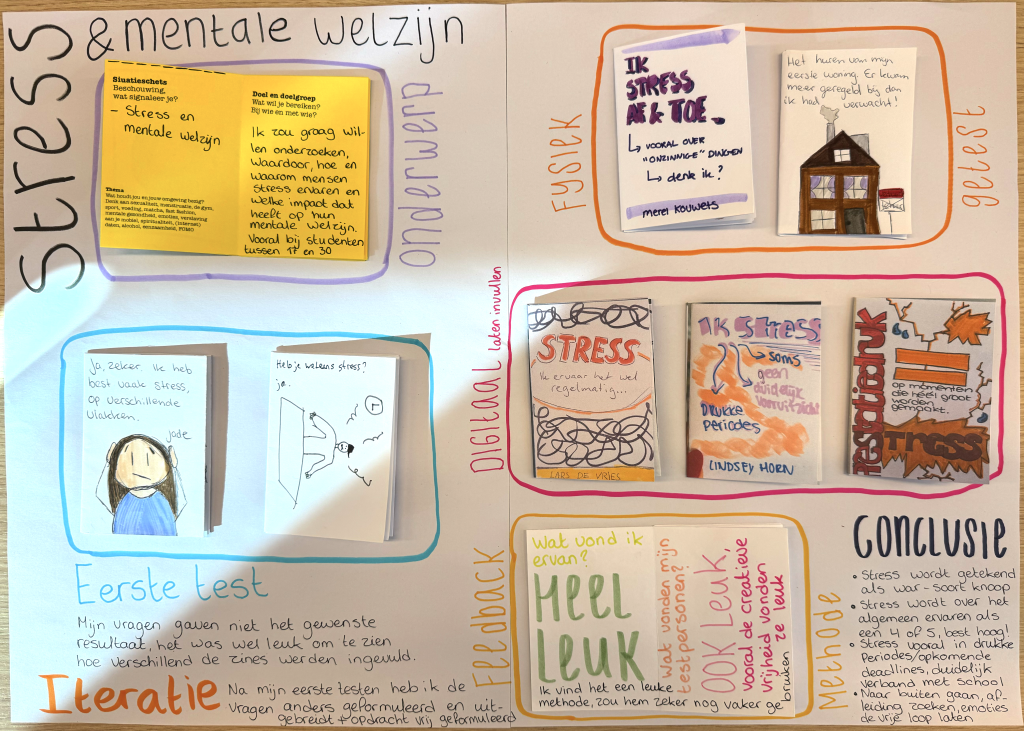 Stress
& mentale welzijn
Situatieschets
Beschouwing,
wat signaleer je?
- Stress en
mentale welzijn
Thema
Wat houdt jou en jouw omgeving bezig?
Denk aan seksualiteit, menstruatie, de gym,
sport, voeding, matcha, fast fashion,
mentale gezondheid, emoties, verslaving
aan je mobiel, spiritualiteit, (internet)
daten, alcohol, eenzaamheid, FOMO
Doel en doelgroep
Wat wil je bereiken?
Bij wie en met wie?
Ik zou graag wil-
len onderzoeken,
waardoor, hoe en
waarom mensen
stress ervaren en
welke impact dat
heeft op hun
mentale welzijn.
Vooral bij studenten
tussen 17 en 30
Onderwerp
Fysiek
IK
STRESS
AF & TOE.
VOORAL OVER
"ONZINNIGE" DINGEN
denk ik?
merel kouwets
Het huren van mijn
eerste woning. Er kwam
meer geregeld bij dan
ik had verwacht!
getest
Ja, zeker. Ik heb
best vaak stress,
op verschillende
vlakken.
jade
Heb je weleens stress?
ja..
Eerste test
Mijn vragen gaven niet het gewenste
resultaat, het was wel leuk om te zien
hoe verschillend de zines werden ingevuld.
Iteratie
Na mijn eerste testen heb ik de
vragen anders geformuleerd en uit-
gebreidt + opdracht vrij geformuleerd
Digitaal laten invullen
STRESS
Ik ervaar het wel
regelmatig...
LARS DE VRIES
IK STRESS
soms
geen
duidelijk
vooruitzicht
DRUKKE
PERIODES
LINDSEY HORN
Prestatiedruk
=
op momenten
die héél groot
worden
gemaakt.
STRESS
Feedback
Wat vond ik
ervan?
HEEL
LEUK
Wat vonden mijn
testpersonen?
OOK LEUK,
vooral de creatieve
vrijheid vonden
ze leuk
Ik vind het een leuke
methode, zou hem zeker nog vaker gebruiken
Methode
CONCLUSIE
• Stress wordt getekend
als war-soort knoop
• Stress wordt over het
algemeen ervaren als
een 4 of 5, best hoog!
• Stress vooral in drukke
periodes/opkomende
deadlines, duidelijk
verband met school
• Naar buiten gaan, af-
leiding zoeken, emoties
de vrije loop laten